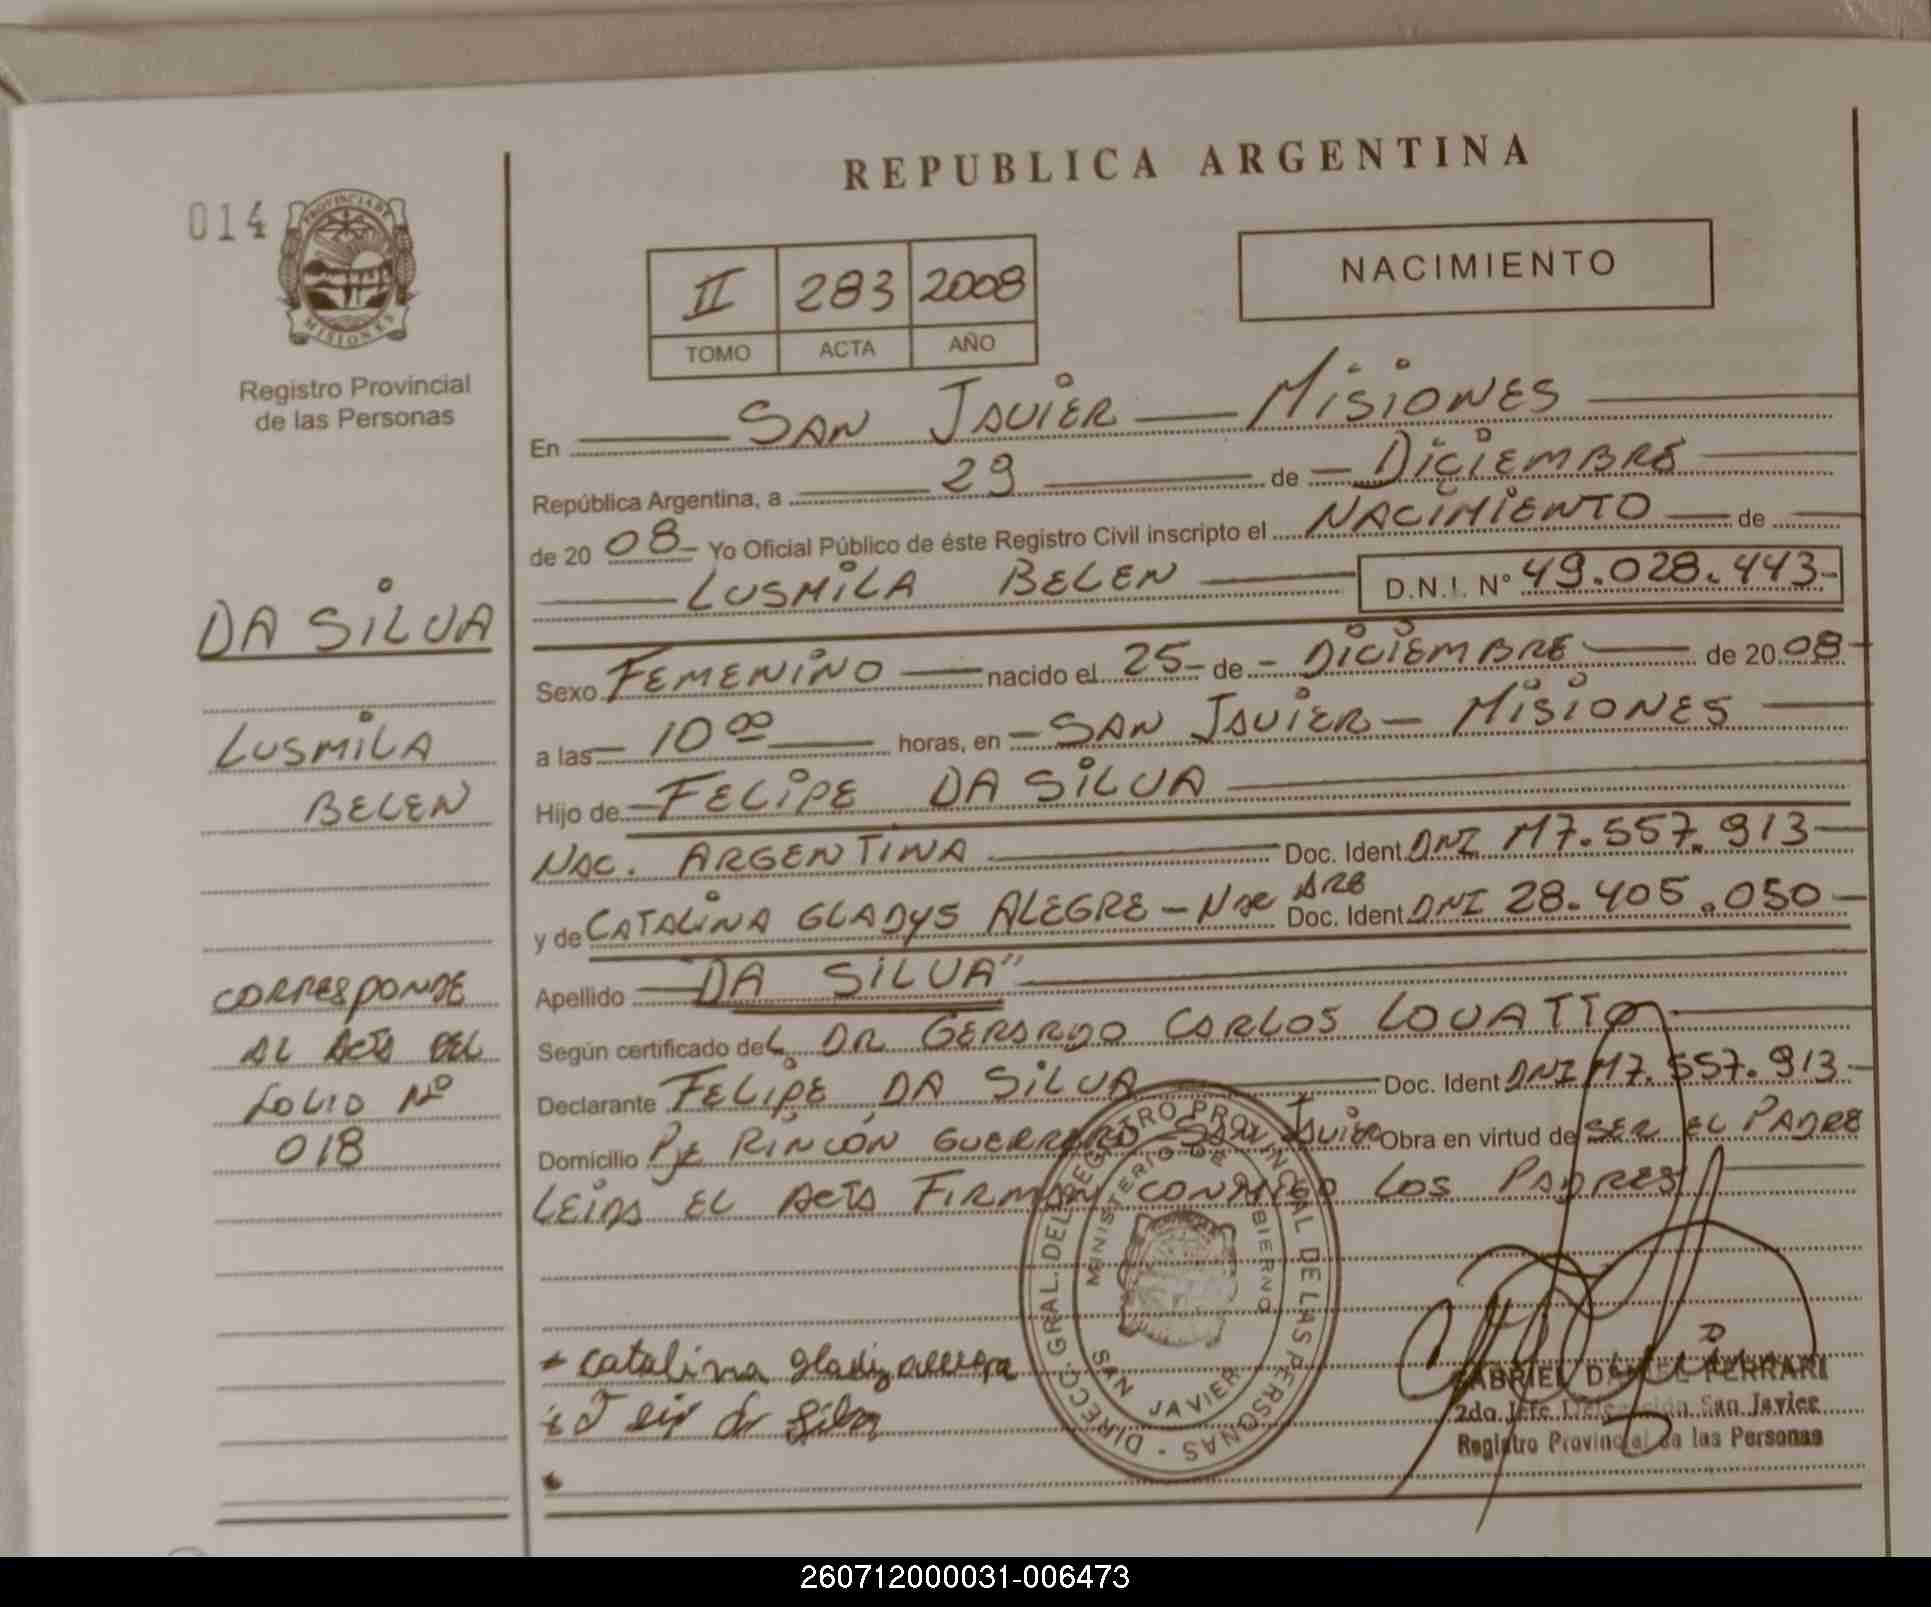 REPUBLICA ARGENTINA
014
PROVINCIA DE
MISIONES
Registro Provincial
de las Personas
II 283 2008
TOMO ACTA AÑO
NACIMIENTO
En SAN JAVIER — MISIONES
República Argentina, a 29 de DICIEMBRE
de 20 08 Yo Oficial Público de éste Registro Civil inscripto el NACIMIENTO de
LUSMILA BELEN D.N.I. Nº 49.028.443-
DA SILVA
LUSMILA
BELEN
CORRESPONDE
AL ACTA DEL
FOLIO Nº
018
Sexo FEMENINO nacido el 25 de DICIEMBRE de 2008
a las 10 00 horas, en SAN JAVIER - MISIONES
Hijo de FELIPE DA SILVA
NAC. ARGENTINA Doc. Ident DNI M7.557.913
y de CATALINA GLADYS ALEGRE - NAC ARG Doc. Ident DNI 28.405.050
Apellido "DA SILVA"
Según certificado del DR GERARDO CARLOS LOVATTO
Declarante FELIPE DA SILVA Doc. Ident DNI M7.557.913
Domicilio Pje RINCÓN GUERRERO - SAN JAVIER Obra en virtud de SER EL PADRE
LEIDA EL ACTA FIRMAN CONMIGO LOS PADRES
DIRECC. GRAL. DEL REGISTRO PROVINCIAL DE LAS PERSONAS
MINISTERIO DE GOBIERNO
SAN JAVIER
catalina gladiz
da silva
GABRIEL DANIEL FERRARI
2do Jefe Delegación San Javier
Registro Provincial de las Personas
260712000031-006473